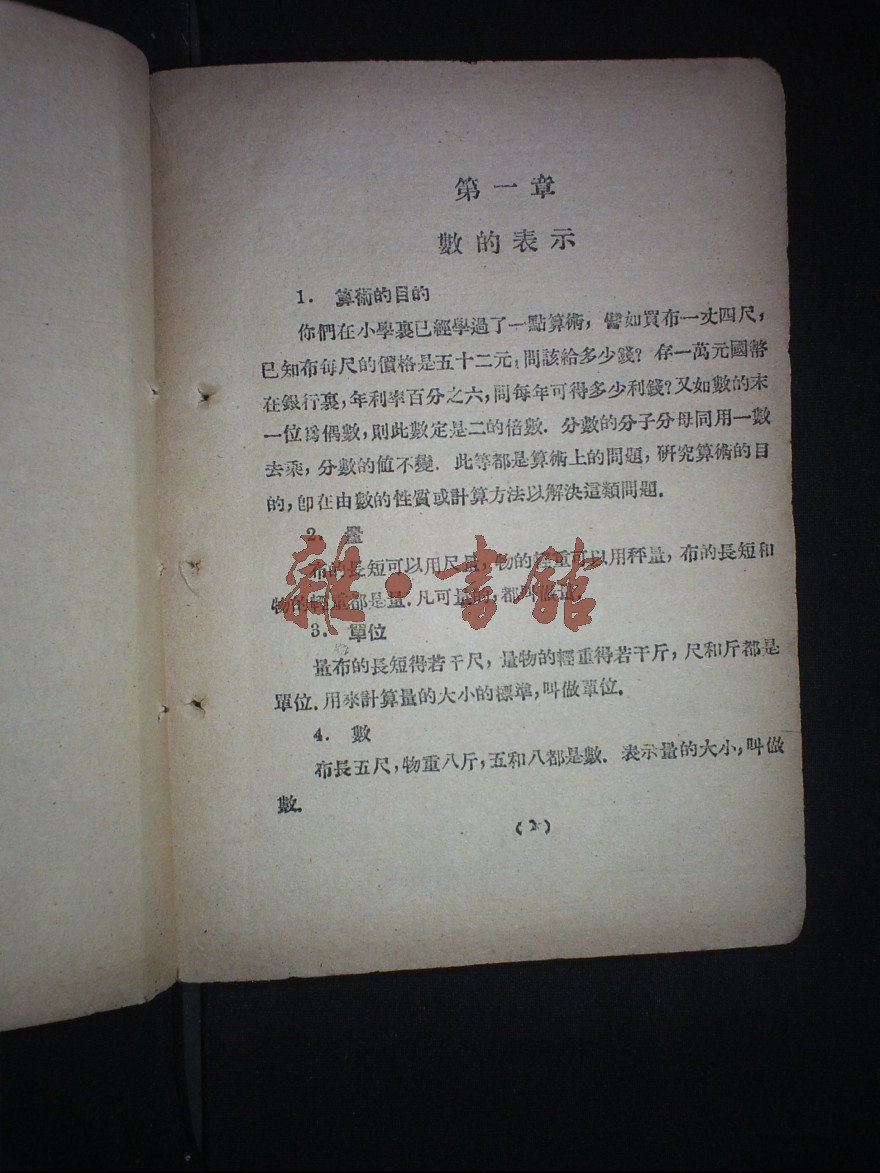 第一章
數的表示
1. 算術的目的
你們在小學裏已經學過了一點算術, 譬如買布一丈四尺,
已知布每尺的價格是五十二元, 問該給多少錢? 存一萬元國幣
在銀行裏, 年利率百分之六, 問每年可得多少利錢? 又如數的末
一位爲偶數, 則此數定是二的倍數. 分數的分子分母同用一數
去乘, 分數的值不變. 此等都是算術上的問題, 硏究算術的目
的, 卽在由數的性質或計算方法以解決這類問題.
2. 量
布的長短可以用尺量, 物的輕重可以用秤量, 布的長短和
物的輕重都是量. 凡可量的, 都叫做量.
3. 單位
量布的長短得若干尺, 量物的輕重得若干斤, 尺和斤都是
單位. 用來計算量的大小的標準, 叫做單位.
4. 數
布長五尺, 物重八斤, 五和八都是數. 表示量的大小, 叫做
數.
雜·書館